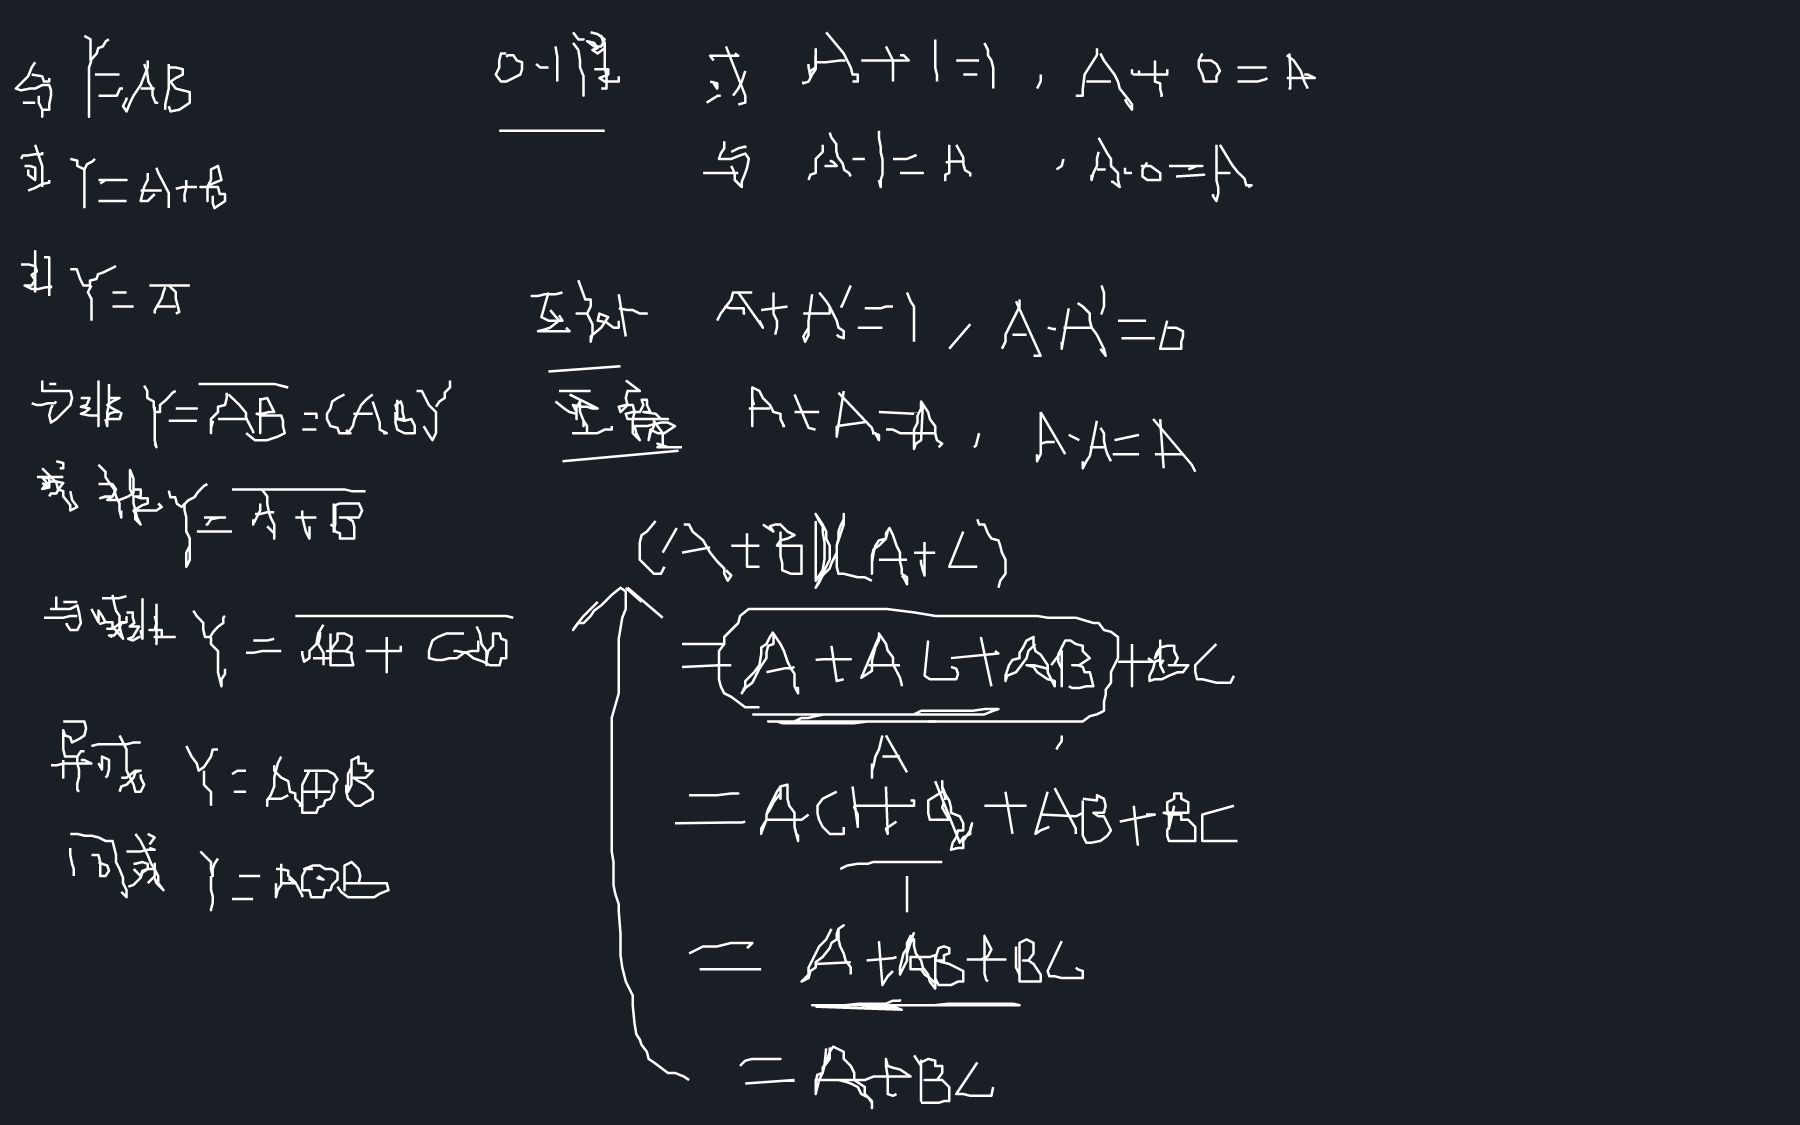 与 Y=AB
或 Y=A+B
非 Y=A̅
与非 Y=\overline{AB}=(AB)'
或非 Y=\overline{A+B}
与或非 Y=\overline{AB+CD}
异或 Y=A⊕B
同或 Y=A⊙B
0-1律 或 A+1=1, A+0=A
与 A·1=A , A·0=A
互补 A+A'=1, A·A'=0
重叠 A+A=A, A·A=A
(A+B)(A+C)
=A+AC+AB+BC
A
=A(1+C)+AB+BC
1
=A+AB+BC
=A+BC